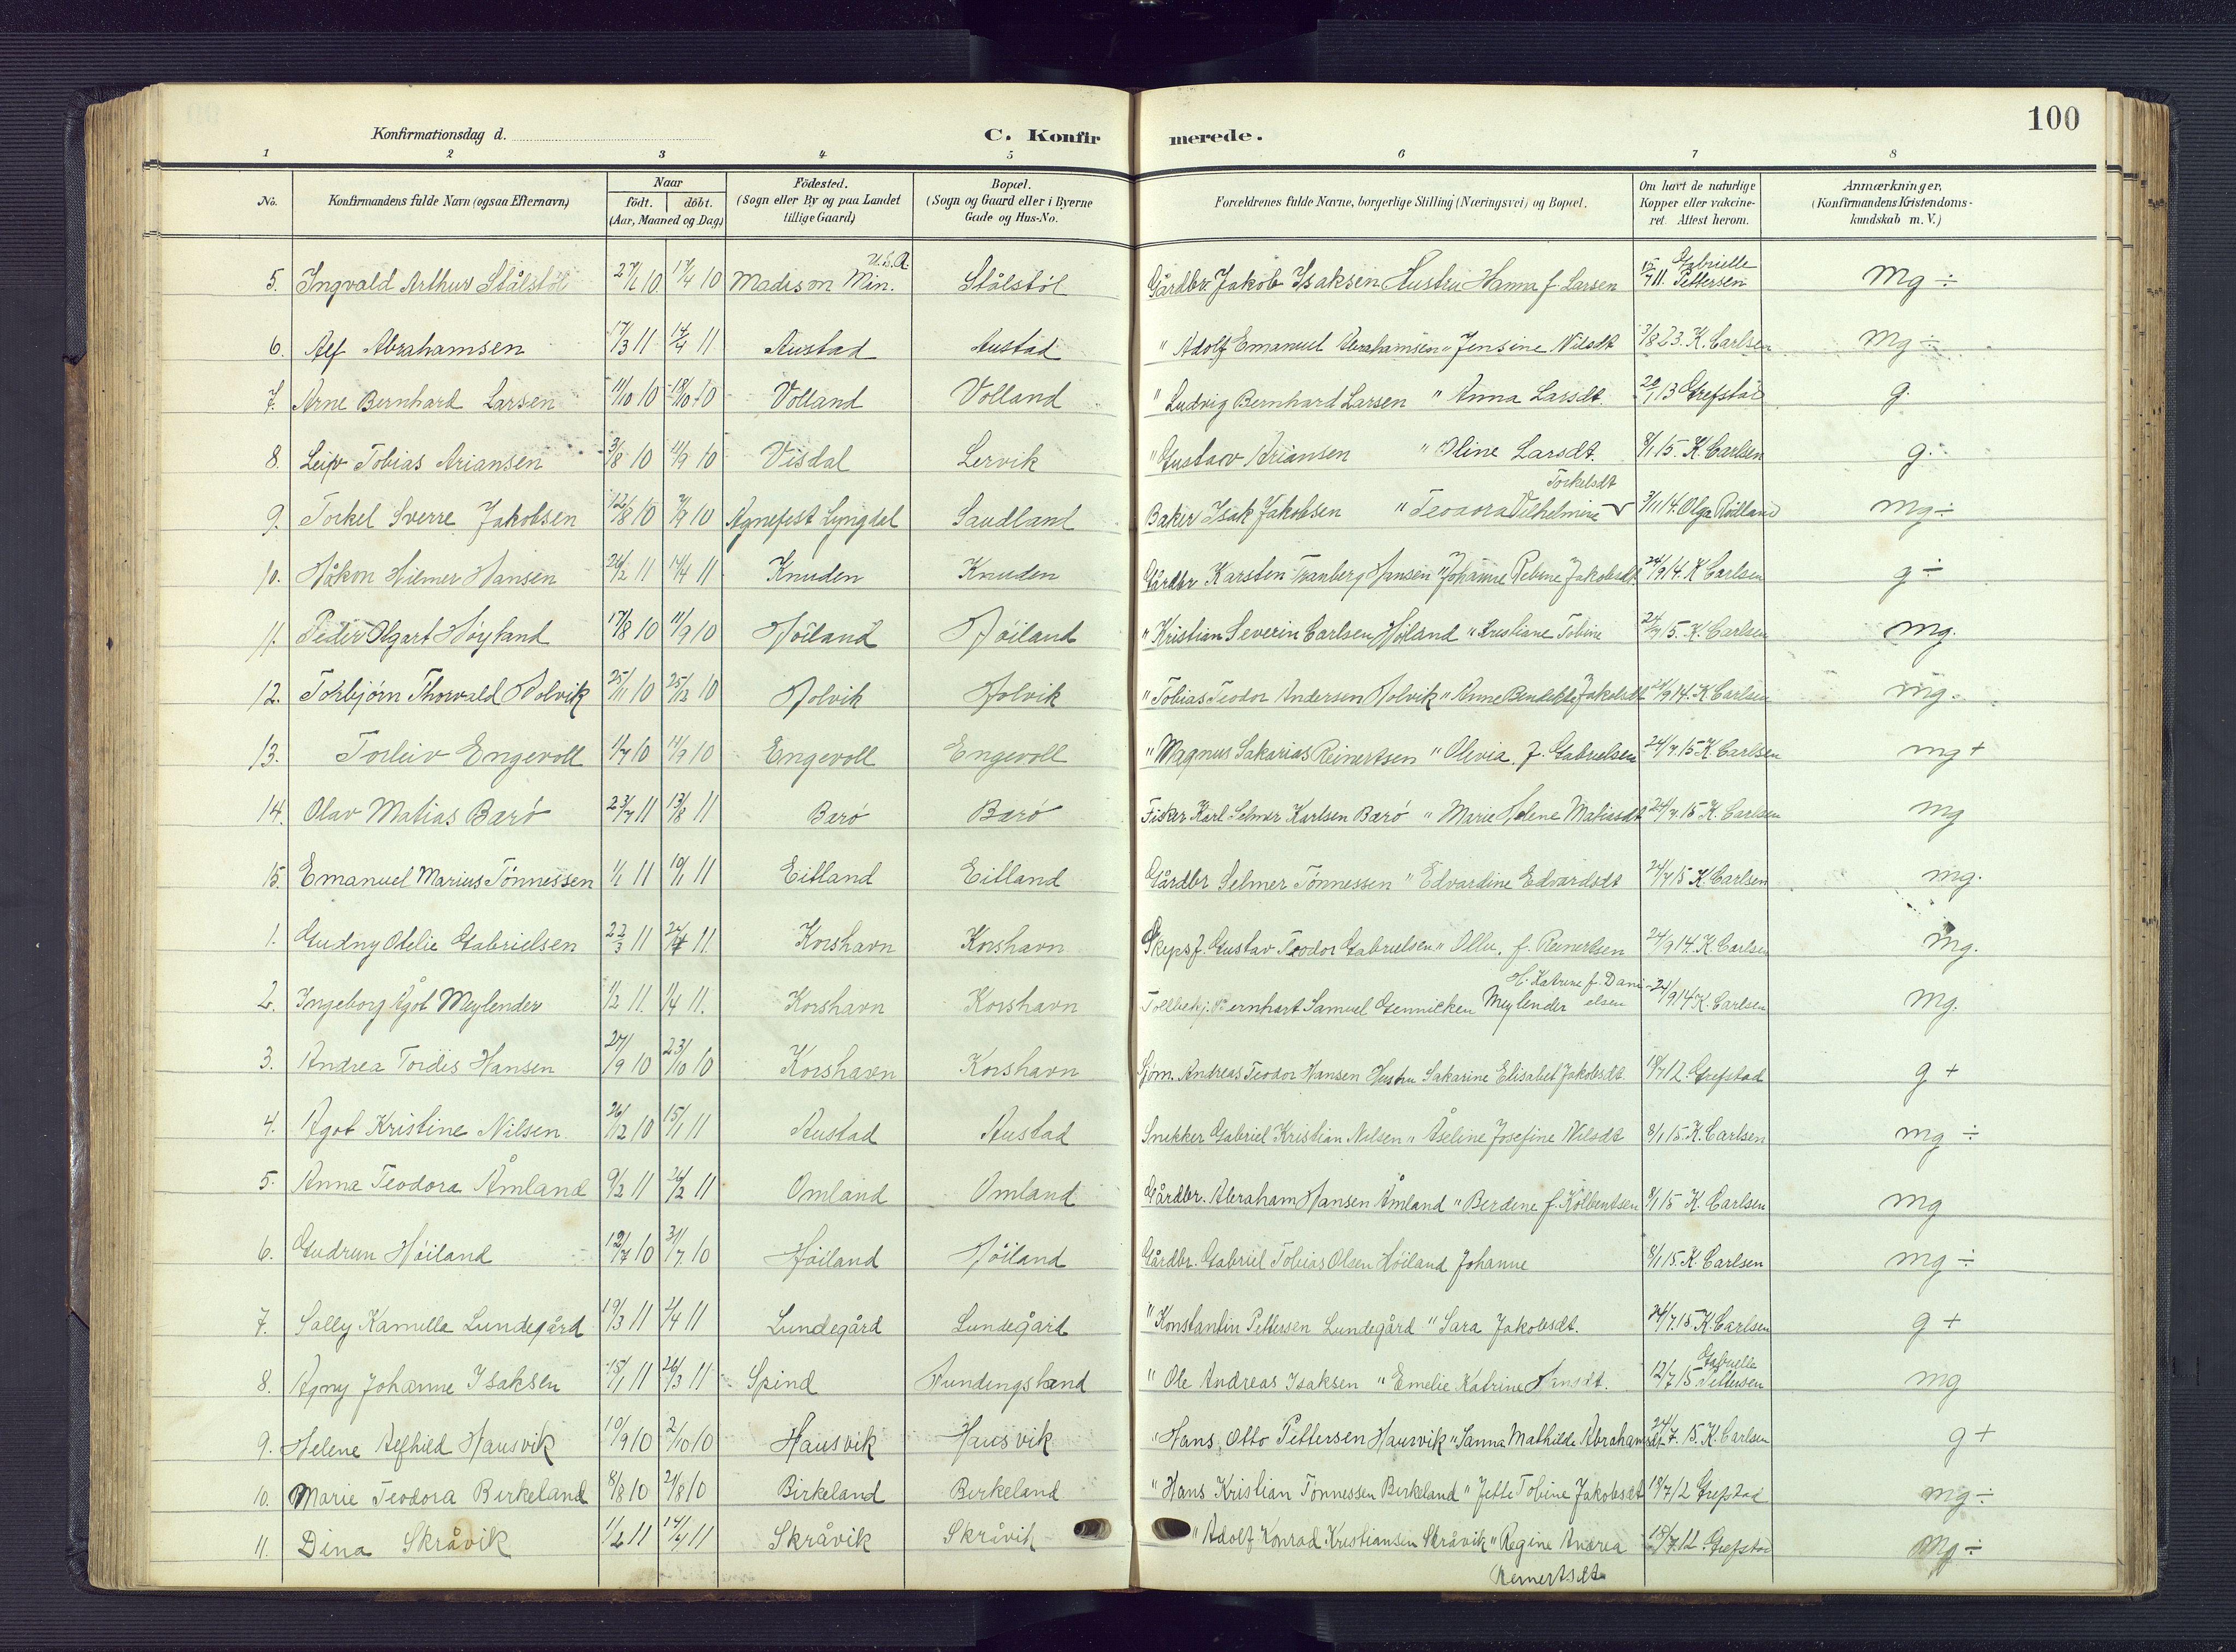 100
Konfirmationsdag d.
C. Konfirmerede.
1 2 3 4 5 6 7 8
No. Konfirmandens fulde Navn (ogsaa Efternavn) Naar født. døbt. (Aar, Maaned og Dag) Födested. (Sogn eller By og paa Landet tillige Gaard) Bopæl. (Sogn og Gaard eller i Byerne Gade og Hus-No. Forældrenes fulde Navne, borgerlige Stilling (Næringsvei) og Bopæl. Om havt de naturlige Kopper eller vakcineret. Attest herom. Anmærkninger, (Konfirmandens Kristendomskundskab m. V.)
5. Ingvald Arthur Stålstöl 10 17/4 10 Madison Min. U.S.A. Stålstöl Gårdbr. Jakob Isaksen Hustru Hanna f. Larsen 15/7 11. Gabrielle Pettersen Mg ÷
6. Alf Abrahamsen 17/3 11 14/4 11 Austad Austad " Adolf Emanuel Abrahamsen " Jensine Nilsdt 3/8 23. K. Carlsen Mg ÷
7. Arne Bernhard Larsen 11/10 10 18/10 10 Volland Volland " Ludvig Bernhard Larsen " Anna Larsdt. 20/1 13 Grefstad g.
8. Leif Tobias Ariansen 3/8 10 11/9 10 Visdal Lervik " Gustav Ariansen " Oline Larsdt. 8/1 15. K. Carlsen g.
9. Torkel Sverre Jakobsen 12/8 10 10 Agnefest Lyngdal Saudland Baker Isak Jakobsen " Teodora Vilhelmine Torkelsdt 3/11 14. Olga Rödland mg ÷
10. Håkon Hilmer Hansen 26/2 11 14/4 11 Knuden Knuden Gårdbr Karsten Hansen " Johanne Rebine Jakobsdt 24/9 14. K Carlsen g ÷
11. Peder Olgart Höyland 17/8 10 11/9 10 Höiland Höiland " Kristian Severin Carlsen Höiland " Kristiane Tobine 24/7 15. K. Carlsen mg.
12. Torbjörn Thorvald Holvik 25/11 10 25/12 10 Holvik Holvik " Tobias Teodor Andersen Holvik " Anne Bendikte Jakobsdt 24/9 14. K Carlsen mg.
13. Torleiv Engevoll 1/7 10 11/9 10 Engevoll Engevoll " Magnus Sakarias Reinertsen " Olevia f. Gabrielsen 24/7. 15 K. Carlsen mg +
14. Olav Matias Barö 23/7 11 13/8 11 Barö Barö Fisker Karl Selmer Karlsen Barö " Marie Helene Matiasdt 24/7. 15 K. Carlsen mg
15. Emanuel Marius Tönnessen 1/1 11 19/1 11 Eitland Eitland Gårdbr Selmer Tönnessen " Edvardine Edvardsdt 24/7 15 K. Carlsen mg.
1. Gudny Otelie Gabrielsen 22/3 11 11. Korshavn Korshavn Skipsf. Gustav Teodor Gabrielsen " f. Reinertsen 24/9 14. K. Carlsen Mg.
2. Ingeborg Ågot Meylender 1/2 11. 1/4 11. Korshavn Korshavn Bernhart Samuel Meylender H. Katrine f. Danielsen 24/9 14 K. Carlsen Mg.
3. Andrea Tordis Hansen 27/9 10 23/10 10 Korshavn Korshavn Sjöm. Andreas Teodor Hansen Hustru Sakarine Elisabet Jakobsdt. 18/7 12. Grefstad g +
4. Agot Kristine Nilsen 26/12 10 15/1 11 Austad Austad Snekker Gabriel Kristian Nilsen " Åseline Josefine Nilsdt 8/1 15. K. Carlsen mg ÷
5. Anna Teodora Åmland 9/2 11 26/2 11 Omland Omland Gårdbr. Abraham Hansen Åmland " Berdine f. Kolbentsen 8/1 15 K. Carlsen mg
6. Gudrun Höiland 12/7 10 31/7. 10 Höiland Höiland Gårdbr. Gabriel Tobias Olsen Höiland Johanne 8/1 15. K. Carlsen mg ÷
7. Sally Kamilla Lundegård 19/3 11 11 Lundegård Lundegård " Konstantin Pettersen Lundegård " Sara Jakobsdt. 24/7. 15 K. Carlsen g +
8. Agny Johanne Isaksen 15/1 11 26/3 11 Spind " Ole Andreas Isaksen " Emelie Katrine Hansdt. 12/7 15 Gabrielle Pettersen mg
9. Helene Alfhild Hausvik 10/9 10 2/10 10 Hausvik Hausvik " Hans Otto Pettersen Hausvik " Sanna Mathilde Abrahamsdt. 24/7. 15. K. Carlsen g +
10. Marie Teodora Birkeland 8/8 10 21/8 10 Birkeland Birkeland " Hans Kristian Tönnessen Birkeland " Jette Tobine Jakobsdt 18/7 12 Grefstad mg ÷
11. Dina Skråvik 1/2 11 14/4 11 Skråvik Skråvik " Adolf Konrad Kristiansen Skråvik " Regine Andrea Reinertsdt. 18/7. 12. Grefstad Mg ÷